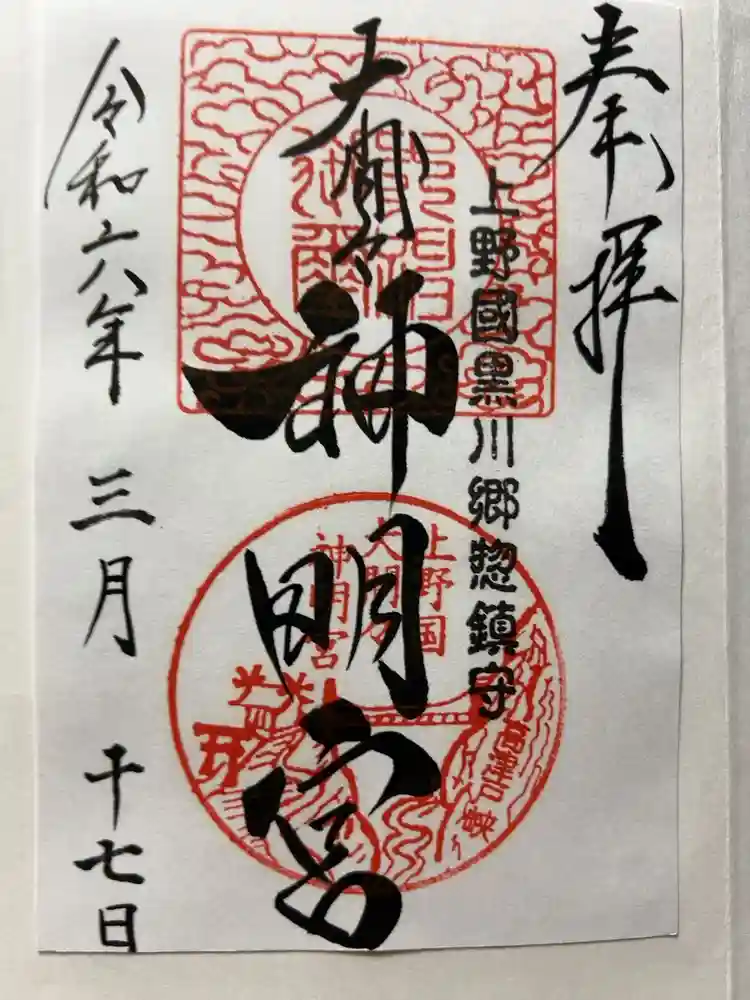 奉拝
上野國黒川郷惣鎮守
大間々
神明宮
上野国
大間々
神明宮
高津戸峡
令和六年 三月 十七日